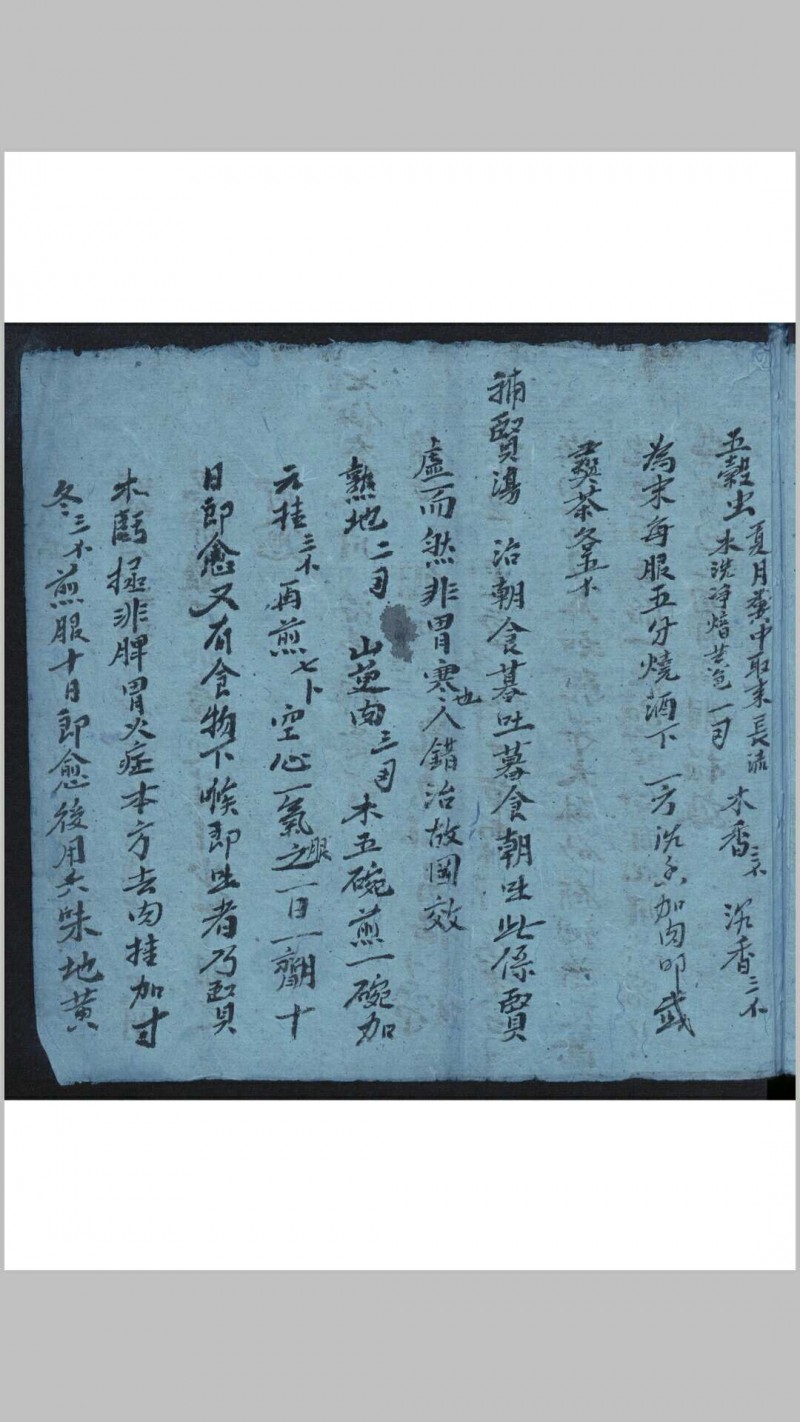 五穀虫 夏月糞中取来長流水洗浄焙黄色一 木香三 沉香三
為末每服五分燒酒下 一方沉香加肉 或
茶各五
補腎湯 治朝食暮吐暮食朝吐此係腎
虛而然非胃寒也人錯治故罔效
熟地二 山萸肉三 水五碗煎一碗加
元桂三 再煎七卜空心一氣服之一日一劑十
日即愈又有食物下喉即吐者乃腎
水虧極非脾胃火症本方去肉桂加寸
冬三 煎服十日即愈後用六味地黄